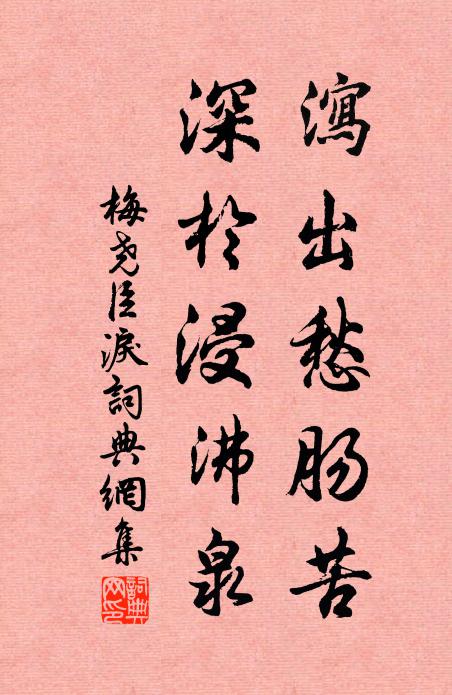 瀉出愁肠苦
深於浸沸泉
梅尧臣淚詞典網集
詞典网印